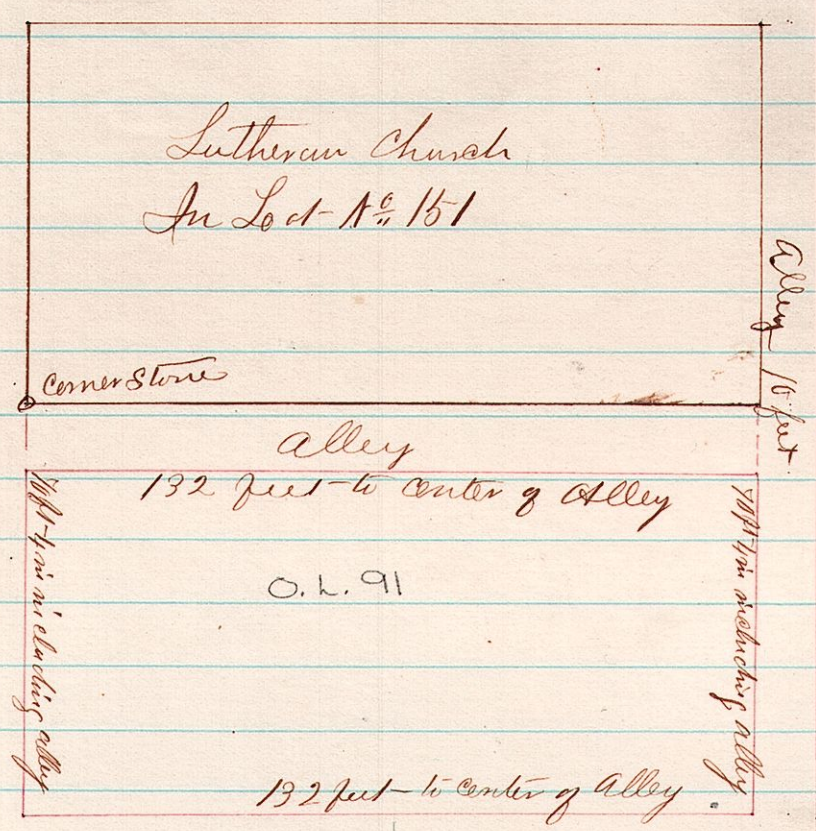 Lutheran Church
In Lot No 151
Alley 10 feet
Corner Stone
Alley
132 feet to center of Alley
70ft 4in including alley
70ft 4in including alley
O.L. 91
132 feet to center of Alley